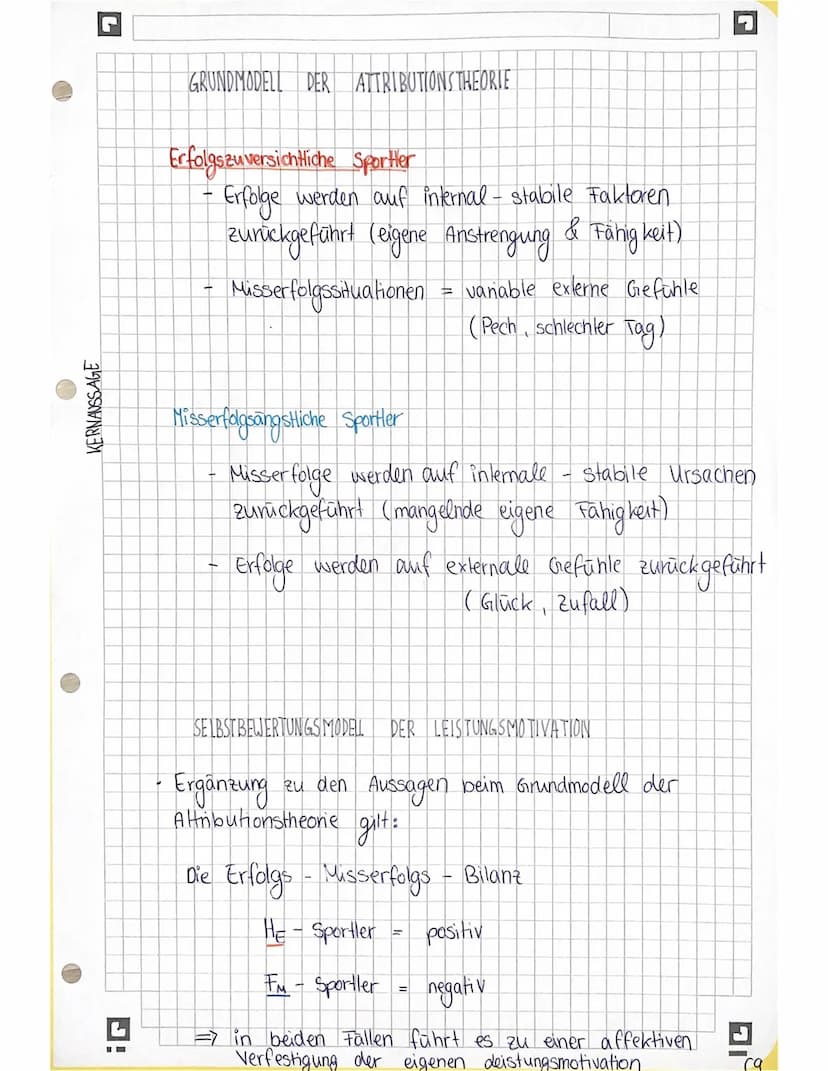 GRUNDMODELL DER ATTRIBUTIONSTHEORIE
Erfolgszuversichtliche Sportler
- Erfolge werden auf internal - stabile Faktoren
zurückgeführt (eigene Anstrengung & Fähigkeit)
- Misserfolgssituationen = variable externe Gefühle
(Pech, schlechter Tag)
KERNAUSSAGE
Misserfolgsängstliche Sportler
- Misserfolge werden auf internale - stabile Ursachen
zurückgeführt (mangelnde eigene Fähigkeit)
- Erfolge werden auf externale Gefühle zurückgeführt
(Glück, Zufall)
SELBSTBEWERTUNGSMODELL DER LEISTUNGSMOTIVATION
· Ergänzung zu den Aussagen beim Grundmodell der
Attributionstheorie gilt:
Die Erfolgs - Misserfolgs - Bilanz
HE - Sportler = positiv
FM - Sportler = negativ
⇒ in beiden Fällen führt es zu einer affektiven
Verfestigung der eigenen Leistungsmotivation